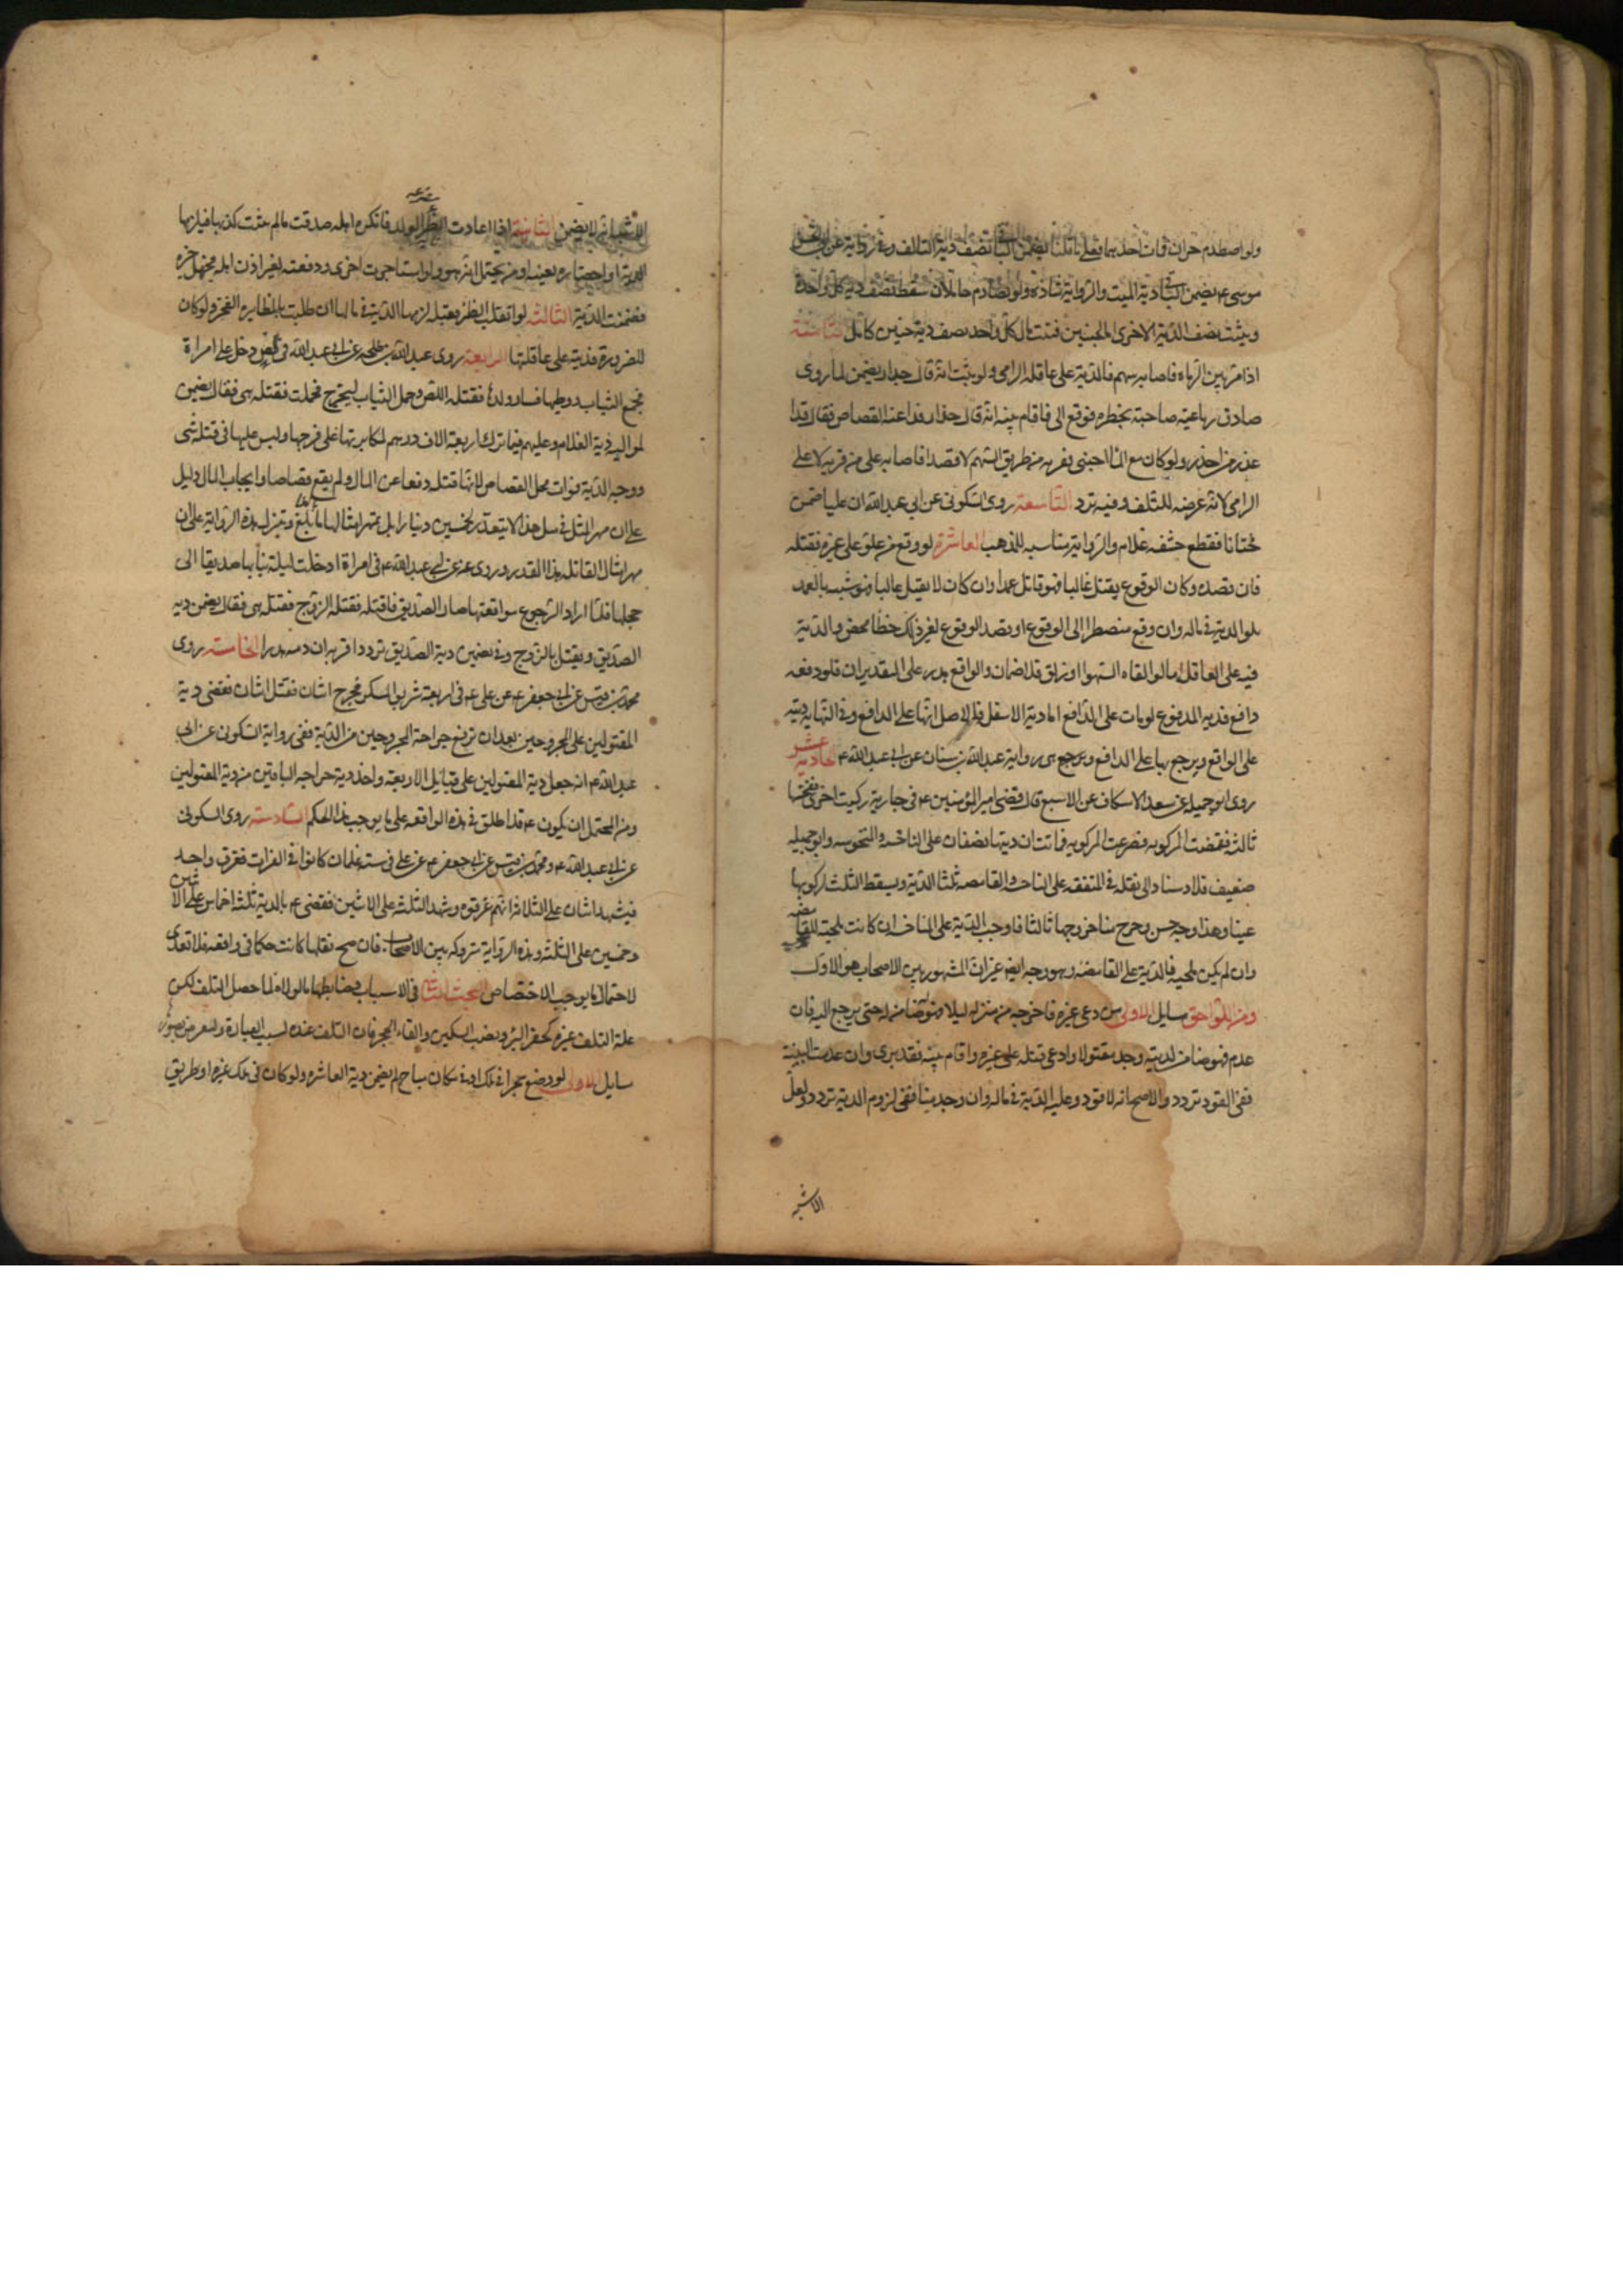 ولو اصطدم حران فمات احدهما فعلى ما قلنا يضمن الباقى نصف دية التالف وفى رواية عن ابى الحسن
موسى ع يضمن الباقى دية الميت والرواية شاذة ولو تصادم حاملان سقط نصف دية كل واحدة
ويثبت نصف الدية للاخرى اما الجنين فثبت فى مال كل واحد نصف دية جنين كامل الثامنة
اذا مر بين الرماه فاصابه سهم فالدية على عاقلة الرامى ولو يثبت انه قال حذار لم يضمن لما روى
صادق رباعية صاحبه بخطره فرفع الى فاقام بينة انه قال حذار فدرا عنه القصاص فقال قد ا
عذر من حذر ولو كان مع المار اجنبى فقربه من طريق السهم لا قصدا فاصابه على من قربه لا على
الرامى لانه عرضه للتلف وفيه تردد التاسعة روى السكونى عن ابى عبد الله ان عليا ضمن
ختانا فقطع حشفه غلام والرواية مناسبه للمذهب العاشرة لو وقع من علو على غيره فقتله
فان قصده وكان الوقوع يقتل غالبا فهو قاتل عمدا وان كان لا يقتل غالبا فهو شبيه بالعمد
يلزمه الدية فى ماله وان وقع مضطرا الى الوقوع او قصد الوقوع لغير ذلك خطأ محض والدية
فيه على العاقلة اما لو القاه الهوا او زلق فلا ضمان والواقع هدر على التقديران فلو دفعه
دافع فديه المدفوع لو مات على الدافع اما دية الاسفل فالاصل انها على الدافع وفى النهاية ديته
على الواقع ويرجع بها على الدافع ويرجع هى رواية عبد الله بن سنان عن ابى عبد الله ع الحادية عشر
روى ابو جميله عن سعد الاسكاف عن الاصبغ قال قضى امير المؤمنين ع فى جارية ركبت اخرى فنخستها
ثالثة فقمصت المركوبه فصرعت المركوبه فماتت ان ديتها نصفان على الناخسه والمنخوسه وابو جميله
ضعيف فلا استناد الى نقله فى المقنعه على الناخسه والقامصه ثلثا الدية ويسقط الثلث لركوبها
عبثا وهذا وجه حسن وخرج متاخر وجها ثالثا فاوجب الدية على الناخسه ان كانت ملجئه للقامصه
وان لم يكن ملجيه فالدية على القامصه وهو وجه ايضا غير ان المشهور بين الاصحاب هو الاول
ومن اللواحق مسايل الاولى من دعى غيره فاخرجه من منزله ليلا فهو ضامن له حتى يرجع اليه فان
عدم فهو ضامن لديته وجد مقتولا وادعى قتله على غيره واقام بينه فقد برى وان عدمت البينة
ففى القود تردد والاصح انه لا قود وعليه الدية فى ماله وان وجد ميتا ففى لزوم الدية تردد ولعل
الاشبه
الاشبه انه لا يضمن الثانية اذا اعادت الظئر الولد فانكره اهله صدقت ما لم يثبت كذبها فيلزمها
الدية او احضاره بعينه او من يحتمل انه هو ولو استاجرت اخرى ودفعته لغير اذن اهله فجهل خبره
ضمنت الدية الثالثة لو انقلبت الظئر فقتله لزمها الدية فى مالها ان طلبت بالمظايره الفخر ولو كان
للضرورة فديته على عاقلتها الرابعة روى عبد الله بن طلحه عن ابى عبد الله فى لص دخل على امراة
فجمع الثياب ووطيها فثار ولدها فقتله اللص وحمل الثياب ليخرج فحملت فقتله هى فقال يضمن
لمواليه دية الغلام وعليهم فيما ترك اربعة الاف درهم لمكابرتها على فرجها وليس عليها فى قتله شى
ووجه الدية فوات محل القصاص لانها قتله دفعا عن المال ولم يقع قصاصا وايجاب المال دليل
على ان مهر المثل فى مثل هذا لا يتقدر بخمسين دينارا بل بمهر امثالها ما بلغ وتنزل هذه الرواية على ان
مهر امثال القاتله هذا القدر وروى عنه عن ابى عبد الله ع فى امراة ادخلت ليلة بنائها صديقا الى
حجلها فلما اراد الرجوع مواقعتها صار الصديق فاقتله فقتله الزوج فقتله هى فقال يضمن ديه
الصديق ويقتل بالزوج وفى تضمين دية الصديق تردد اقربه ان دمه هدر الخامسة روى
محمد بن قيس عن ابى جعفر ع عن على ع فى اربعة شربوا المسكر فجرح اثنان فقتل اثنان فقضى دية
المقتولين على المجروحين بعد ان ترفع جراحة المجروحين من الدية ففى رواية السكونى عن ابى
عبد الله ع انه جعل دية المقتولين على قبايل الاربعة واخذ دية جراحه الباقين من دية المقتولين
ومن المحتمل ان يكون ع قد اطلق فى هذه الواقعه على ما يوجب هذا الحكم السادسة روى السكونى
عن ابى عبد الله ع ومحمد بن قيس عن ابى جعفر ع عن على فى ستة غلمان كانوا فى الفرات فغرق واحد
فيشهد اثنان على الثلاثة انهم غرقوه وشهد الثلثه على الاثنين فقضى ع بالدية ثلثه اخماس على الاثنين
وخمسين على الثلثه وهذه الرواية متروكه بين الاصحاب فان صح نقلها كانت حكما فى واقعه فلا تعدى
لاحتمال ما يوجب الاختصاص البحث الثانى فى الاسباب وضابطها ما لولاه لما حصل التلف لكن
علة التلف غيره كحفر البير ونصب السكين والقاء الحجر فان التلف عنده لسبب العيارة ولنعرض صور
مسايل الاولى لو وضع حجرا فى ملكه او فى مكان مباح لم يضمن دية العاثر ولو كان فى ملك غيره او طريق